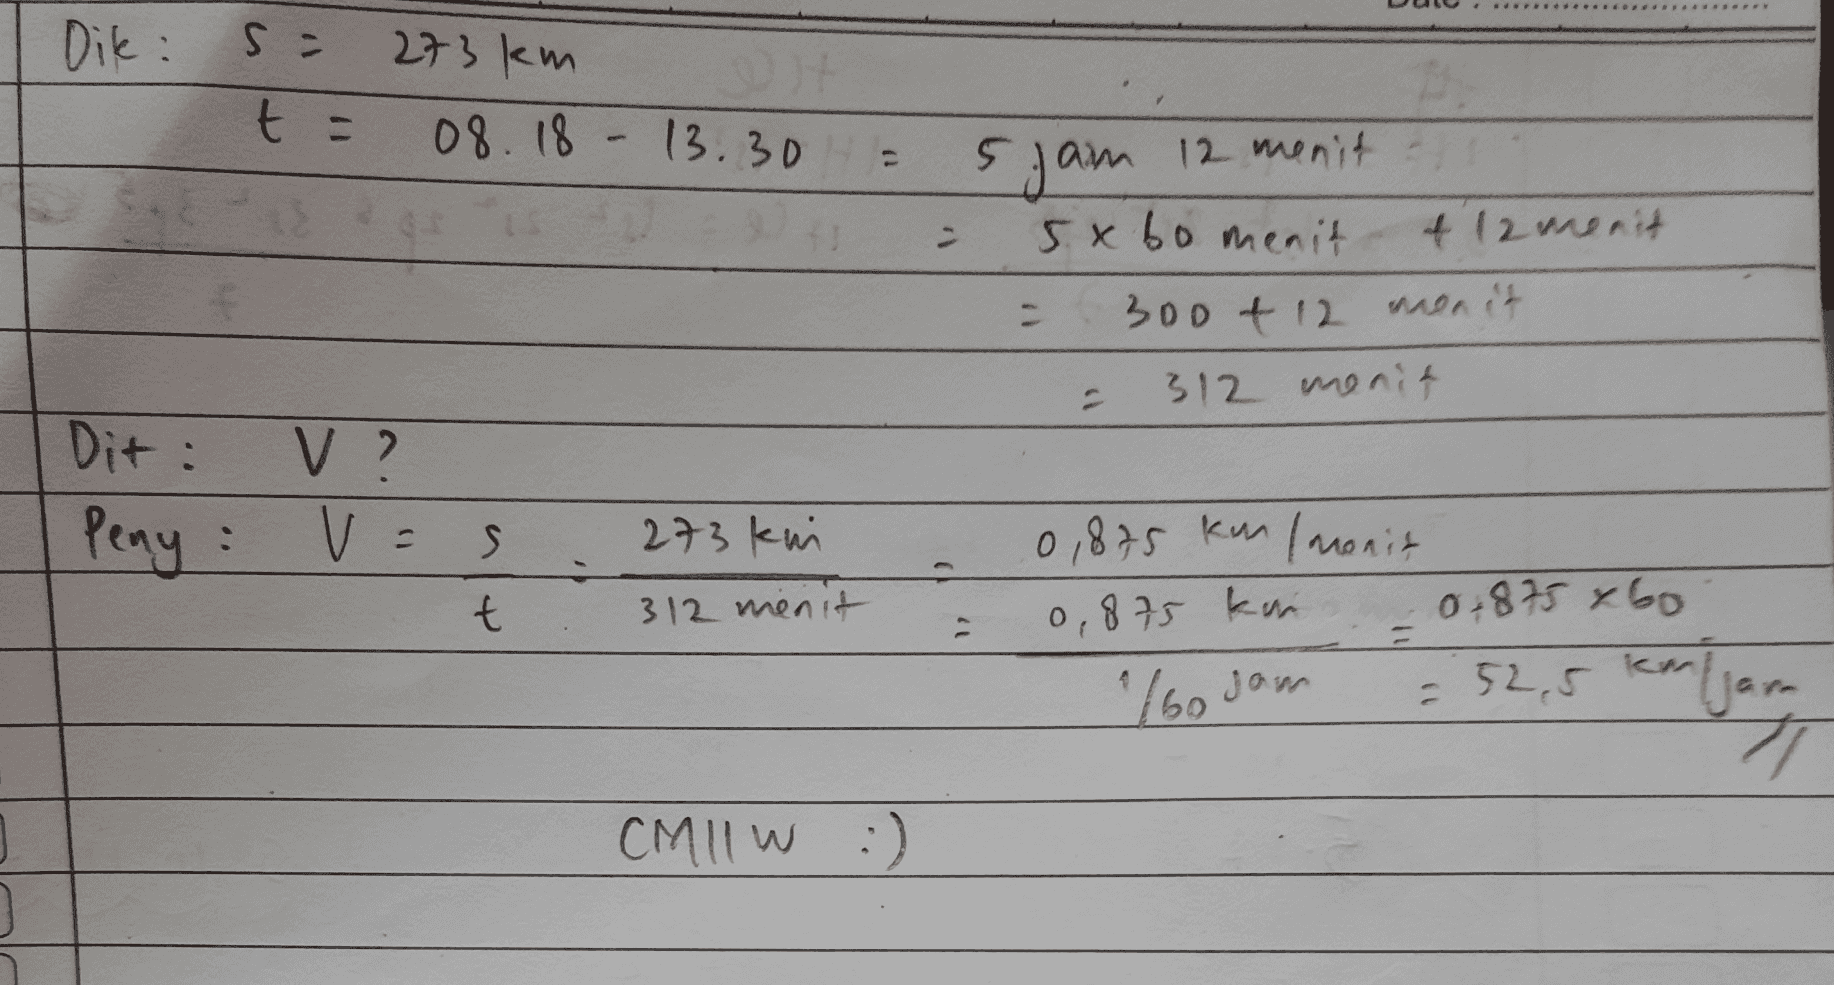 Date : ..............................
Dik : s = 273 km
t = 08.18 - 13.30 = 5 jam 12 menit
= 5 x 60 menit + 12 menit
= 300 + 12 menit
= 312 menit
Dit : V ?
Peny : V = s/t = 273 km/312 menit = 0,875 km/menit
= 0,875 km / 1/60 jam = 0,875 x 60
= 52,5 km/jam //
CMIIW :)